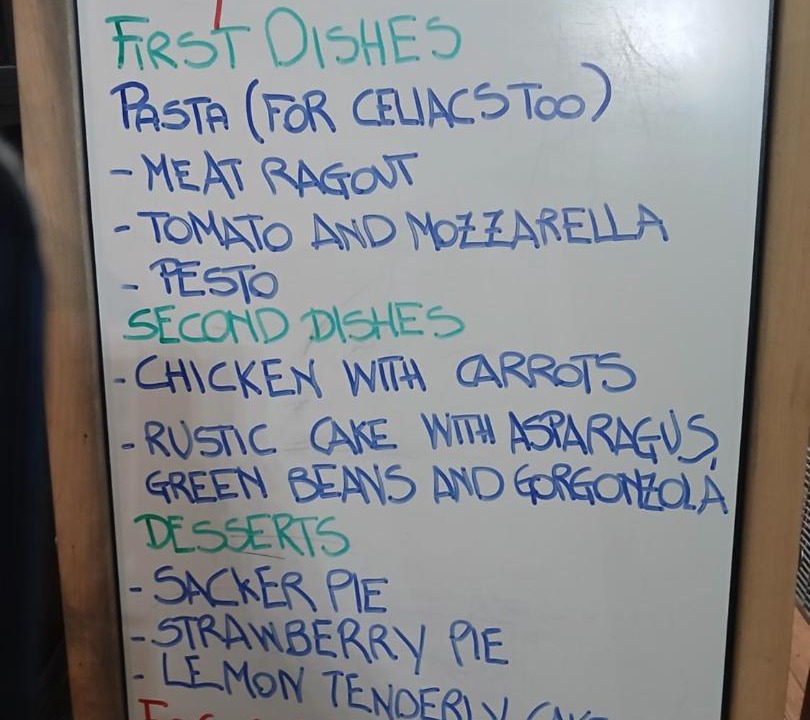 FIRST DISHES
PASTA (FOR CELIACS TOO)
- MEAT RAGOUT
- TOMATO AND MOZZARELLA
- PESTO
SECOND DISHES
- CHICKEN WITH CARROTS
- RUSTIC CAKE WITH ASPARAGUS,
GREEN BEANS AND GORGONZOLA
DESSERTS
- SACKER PIE
- STRAWBERRY PIE
- LEMON TENDERLY CAKE